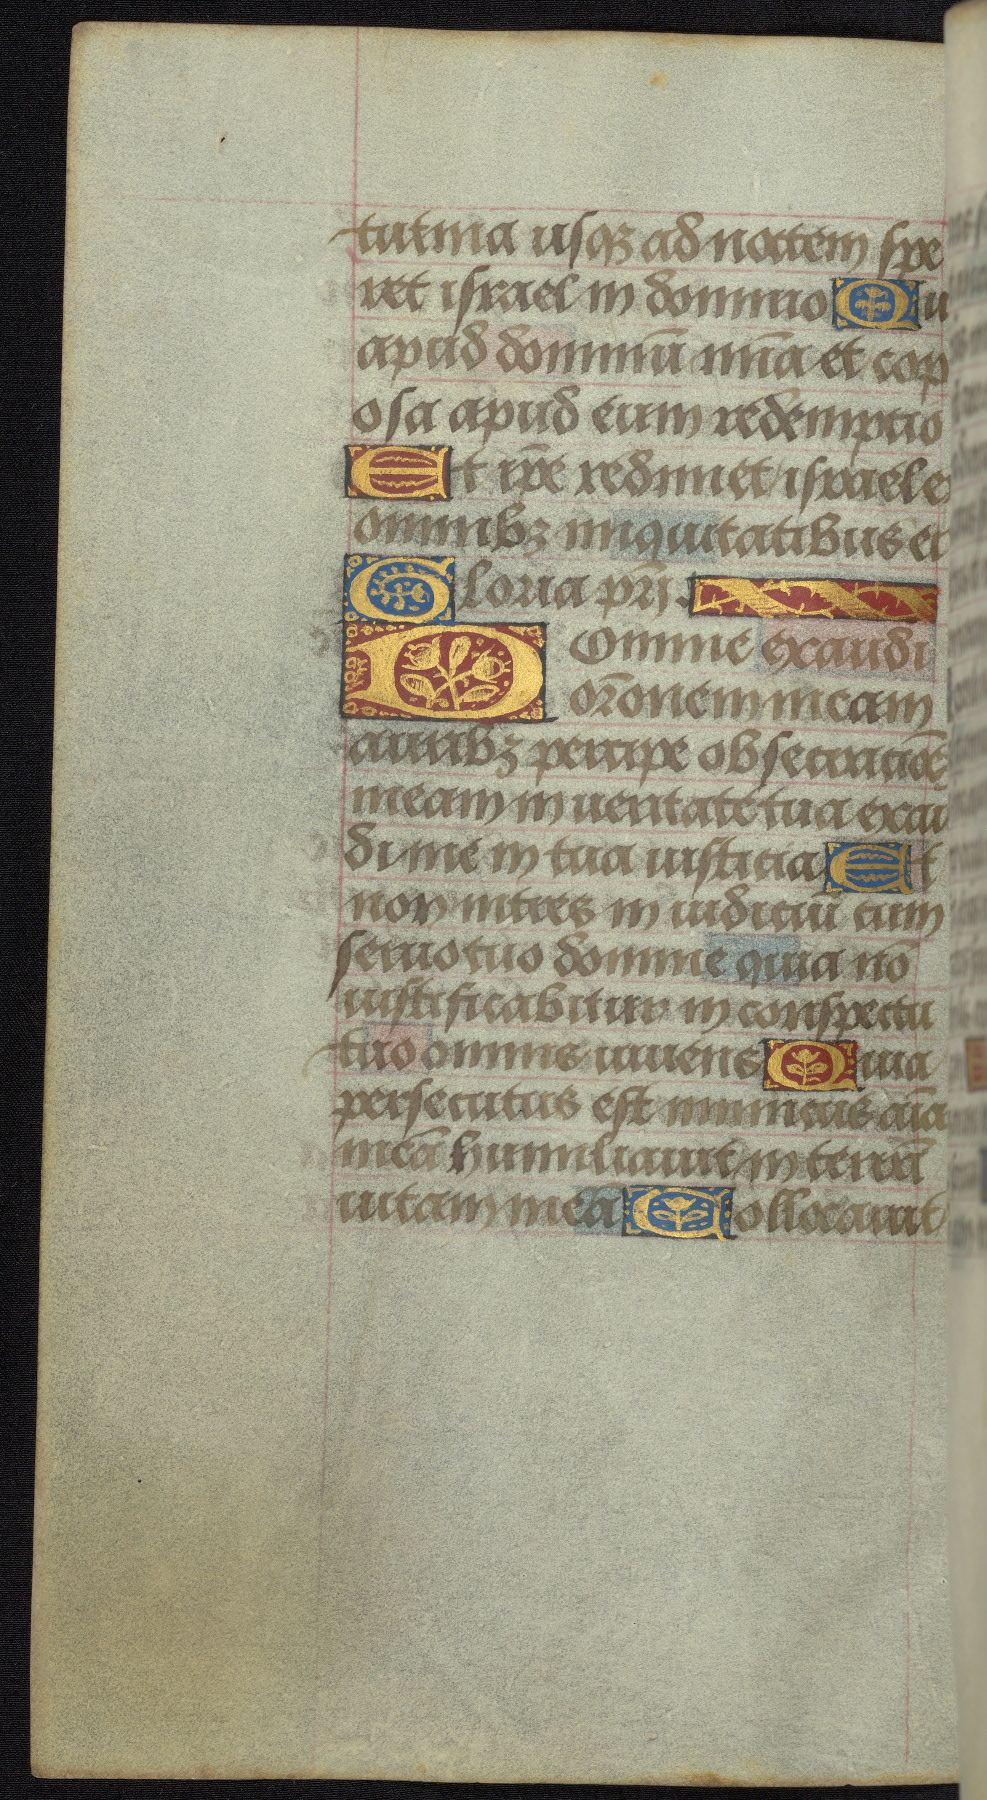 tutina usq₃ ad noctem spe
ret israel in domino Qu
apud dominū mīa et copi
osa apud eum redemptio
Et ip̄e redimet israel e
omnib₃ iniquitatibus ei
Gloria pr̄i
Domine exaudi
or̄onem meam
aurib₃ percipe obsecracioē
meam in ueritate tua exau
di me in tua iusticia Et
non intres in iudiciū cum
seruo tuo domine quia nō
iustificabitur in conspectu
tuo omnis uiuens Quia
persecutus est inimicus aīa
meā humiliauit in terra
uitam meā Collocauit